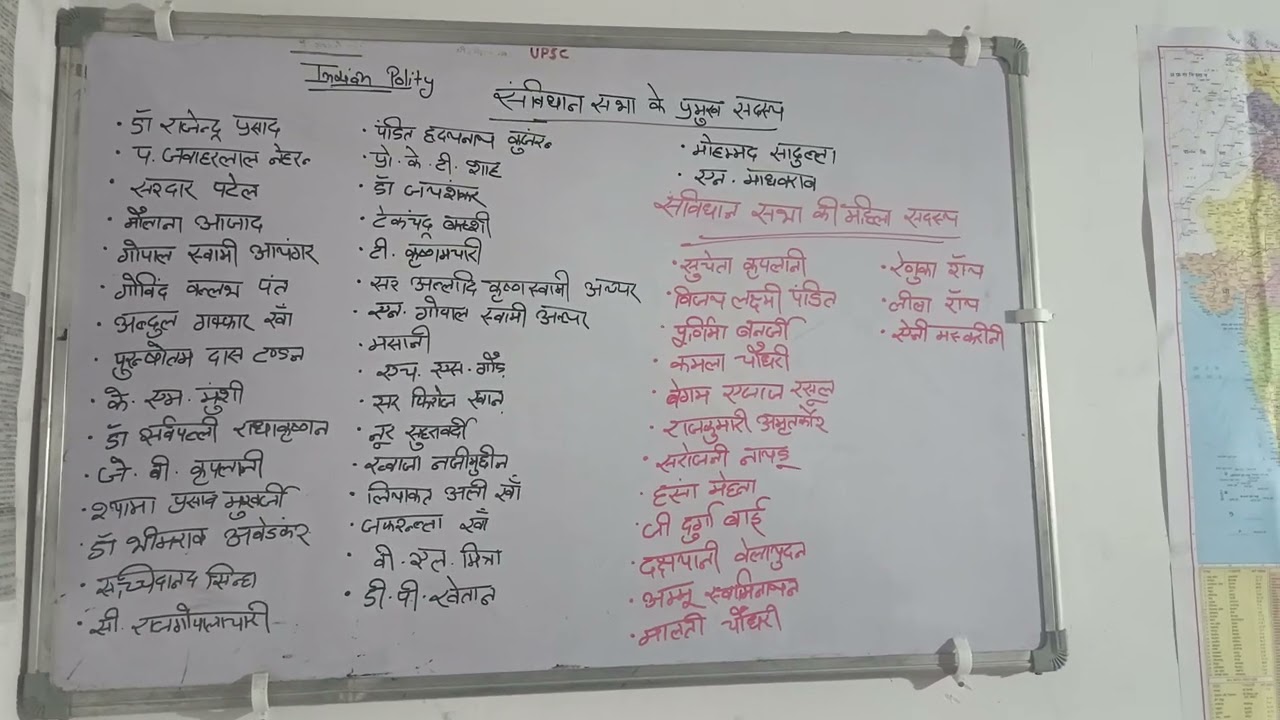 UPSC
Indian Polity
संविधान सभा के प्रमुख सदस्य
• डॉ राजेन्द्र प्रसाद
• प. जवाहरलाल नेहरू
• सरदार पटेल
• मौलाना आजाद
• गोपाल स्वामी आयंगर
• गोविंद वल्लभ पंत
• अब्दुल गफ्फार खाँ
• पुरुषोतम दास टण्डन
• के. एम. मुंशी
• डॉ सर्वपल्ली राधाकृष्णन
• जे. वी. कृपलानी
• श्यामा प्रसाद मुखर्जी
• डॉ भीमराव अंबेडकर
• सच्चिदानंद सिन्हा
• सी. राजगोपालाचारी
• पंडित हृदयनाथ कुंजरू
• प्रो. के. टी. शाह
• डॉ जयशंकर
• टेकचंद्र बख्शी
• टी. कृष्णामचारी
• सर अल्लादि कृष्णास्वामी अय्यर
• एन. गोपाल स्वामी अय्यर
• मसानी
• एच. एस. गौड़
• सर फिरोज खान
• नूर सुहरावर्दी
• ख्वाजा नजीमुद्दीन
• लियाकत अली खाँ
• जफरुल्ला खाँ
• वी. एल. मित्रा
• डी. पी. खेतान
• मोहम्मद सादुल्ला
• एन. माधवराव
संविधान सभा की महिला सदस्य
• सुचेता कृपलानी
• विजय लक्ष्मी पंडित
• पूर्णिमा बनर्जी
• कमला चौधरी
• बेगम एजाज रसूल
• राजकुमारी अमृतकौर
• सरोजनी नायडू
• हंसा मेहता
• जी दुर्गा बाई
• दक्षयानी वेलायुदन
• अम्मू स्वामिनाथन
• मालती चौधरी
• रेणुका रॉय
• लीला रॉय
• ऐनी मस्करीनी